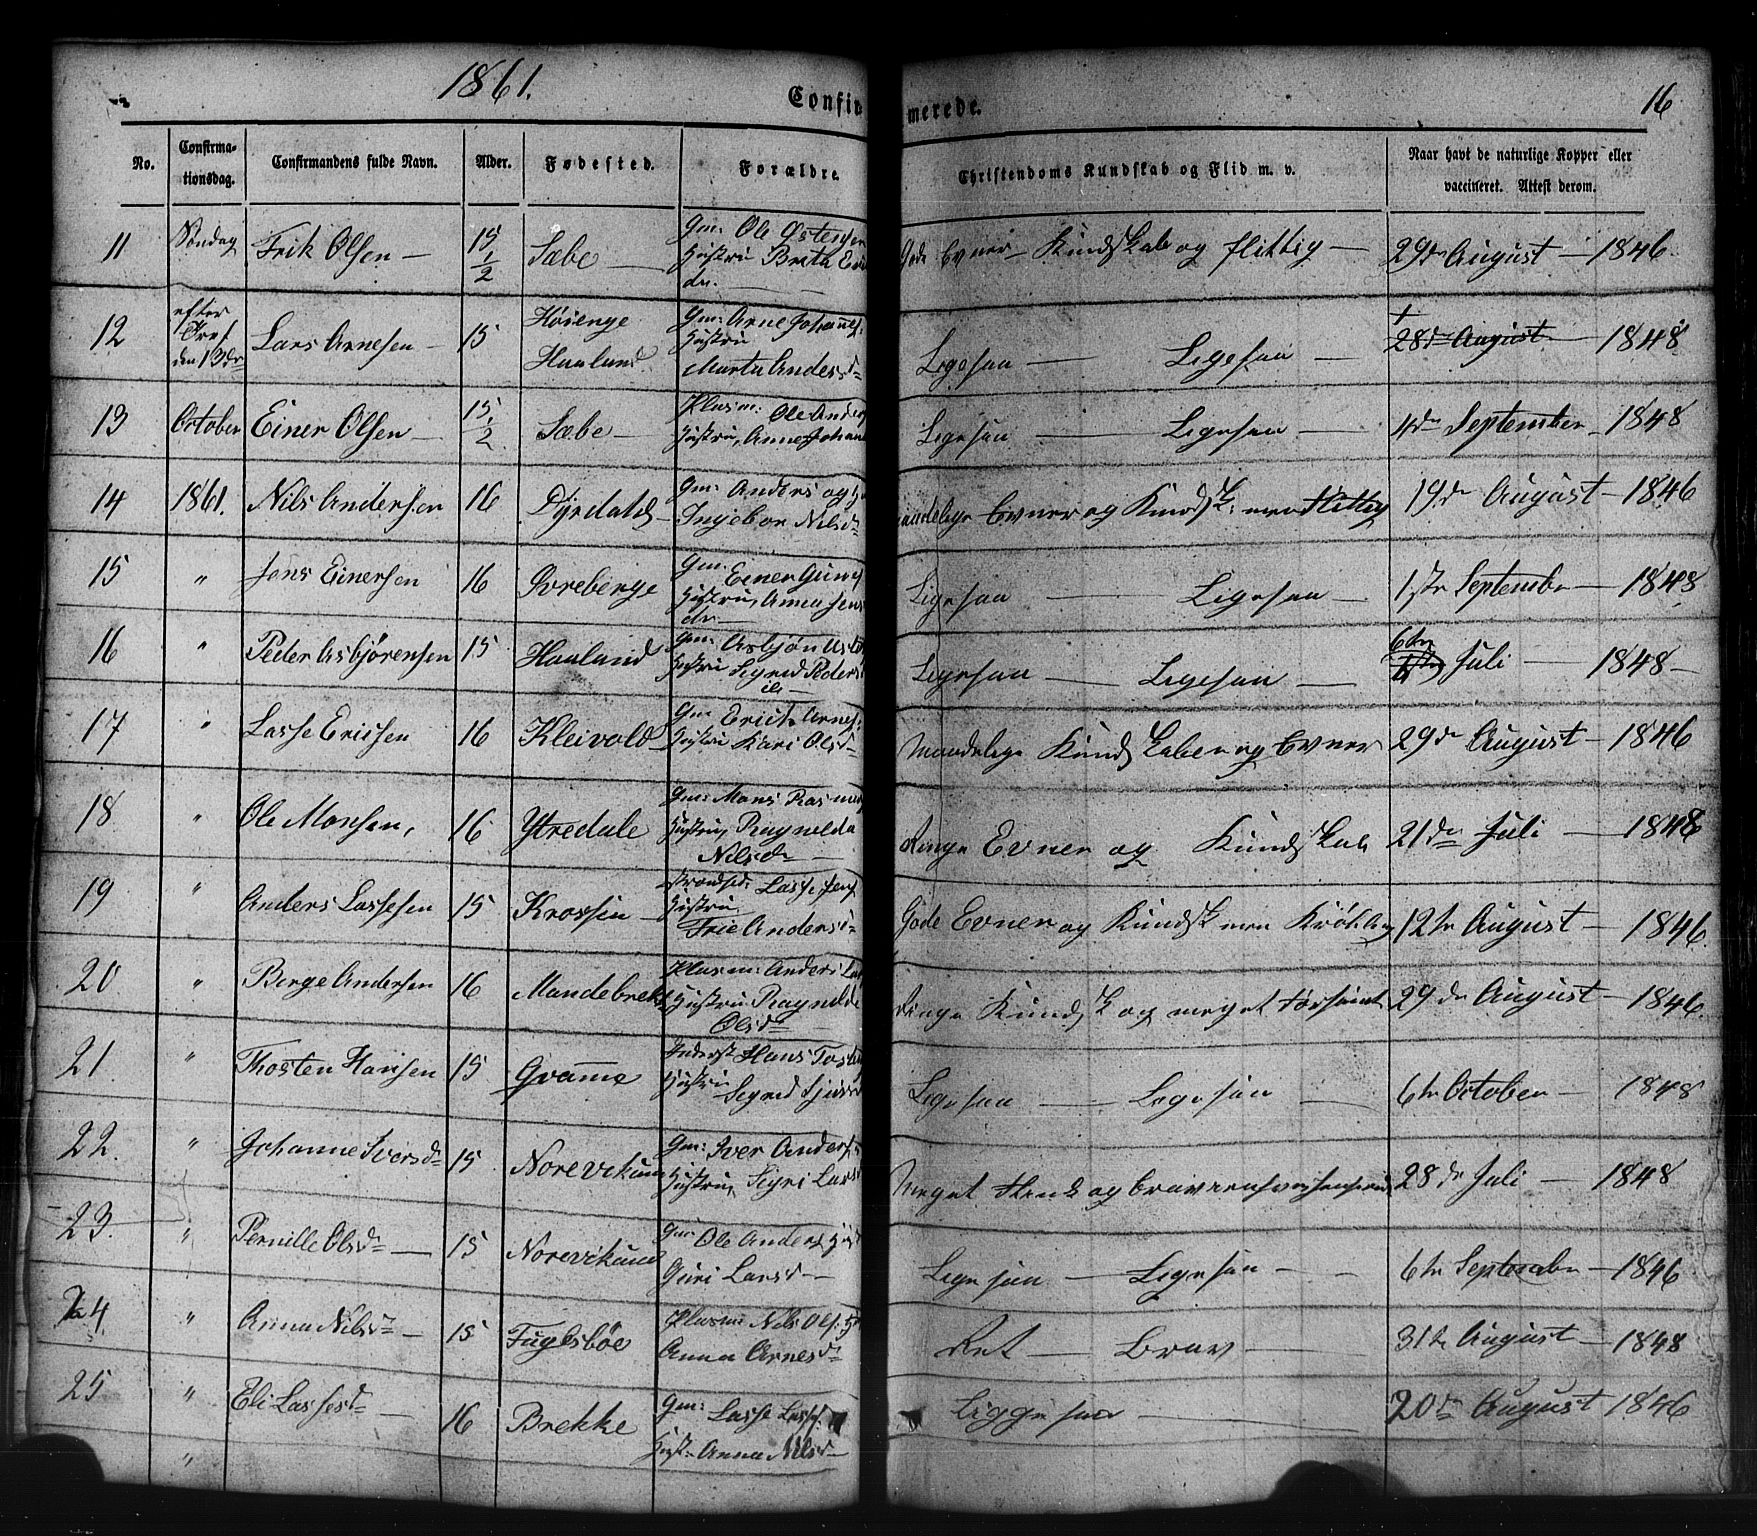 1861.
Confir merede.
16
No.
Confirma-
tionsdag.
Confirmandens fulde Navn.
Alder.
Fødested.
Forældre.
Christendoms Kundskab og Flid m. v.
Naar havt de naturlige Kopper eller
vaccineret. Attest derom.
11 Søndag Erik Olsen — 15 1/2 Sæbe — Gm: Ole Østensen
Hustru Brita
dr. —
Gode Evner Kundskab og flittig — 29de August — 1846
12 efter
Tref
den 13de Lars Arnesen — 15 Høienge
Haaland Gm: Arne Johannes.
Hustru
Marta Andersd
Ligesaa — Ligesaa — 28de August — 1848
13 October Einer Olsen — 15 1/2 Sæbe — Plasm: Ole Anders
Hustru, Anne Johan
Ligesaa — Ligesaa — 4de September — 1848
14 1861. Nils Andersen 16 Dyrdal — Gm: Anders og
Ingebor Nilsd
maadelige Evner og Kundsk: men flittig 19de August — 1846
15 " Jens Einersen 16 Øvreberge Gm: Einer
Hustru, Anna Jens
dr. —
Ligesaa — Ligesaa — 1ste September — 1848
16 " Peder Asbjørensen 15 Haaland Gm: Asbjøn
Hustru Sigrid Peders
Ligesaa — Ligesaa — 6te Juli — 1848 —
17 " Lasse Ericsen 16 Kleivold — Gm Erick Arnes
Hustru Kari Olsd
Maadelige Kundskaber og Evner 29de August — 1846
18 " Ole Monsen, 16 Ytredale Gm: Mons Rasmus
Hustru, Ragnilda
Nilsd —
Ringe Evner og Kundskab 21de Juli — 1848
19 " Anders Lassesen 15 Krossen — Strandsd: Lasse Jens
Hustru
Andersd
Gode Evner og Kundsk men 12te August — 1846
20 " Børge Andersen 16 Mandebrekk Plasm: Anders
Hustru Ragnilde
Olsd
Ringe Kundsk og meget forsømt 29de August — 1846.
21. " Thosten Hansen 15 Qvamme Inderst Hans
Hustru
Sigrid
Ligesaa — Ligesaa — 6te October — 1848
22. " Johanne Iversd 15 Norevikum Gm: Iver Anders
Hustru, Sigri Lars
Meget flink og 28de Juli — 1848
23. " Pernille Olsd — 15 Norevikum Gm: Ole Anders
Guri Larsd —
Ligesaa — Ligesaa — 6te September — 1846
24 " Anna Nilsd — 15 Fuglebøe Plasm: Nils Ols.
Anna Arnesd
Ret — Brav — 31te August — 1848
25 " Eli Lassesd — 16 Brekke Gm: Lasse Lasses.
Hust: Anna Nilsd —
Liggesaa — 20de August 1846
"